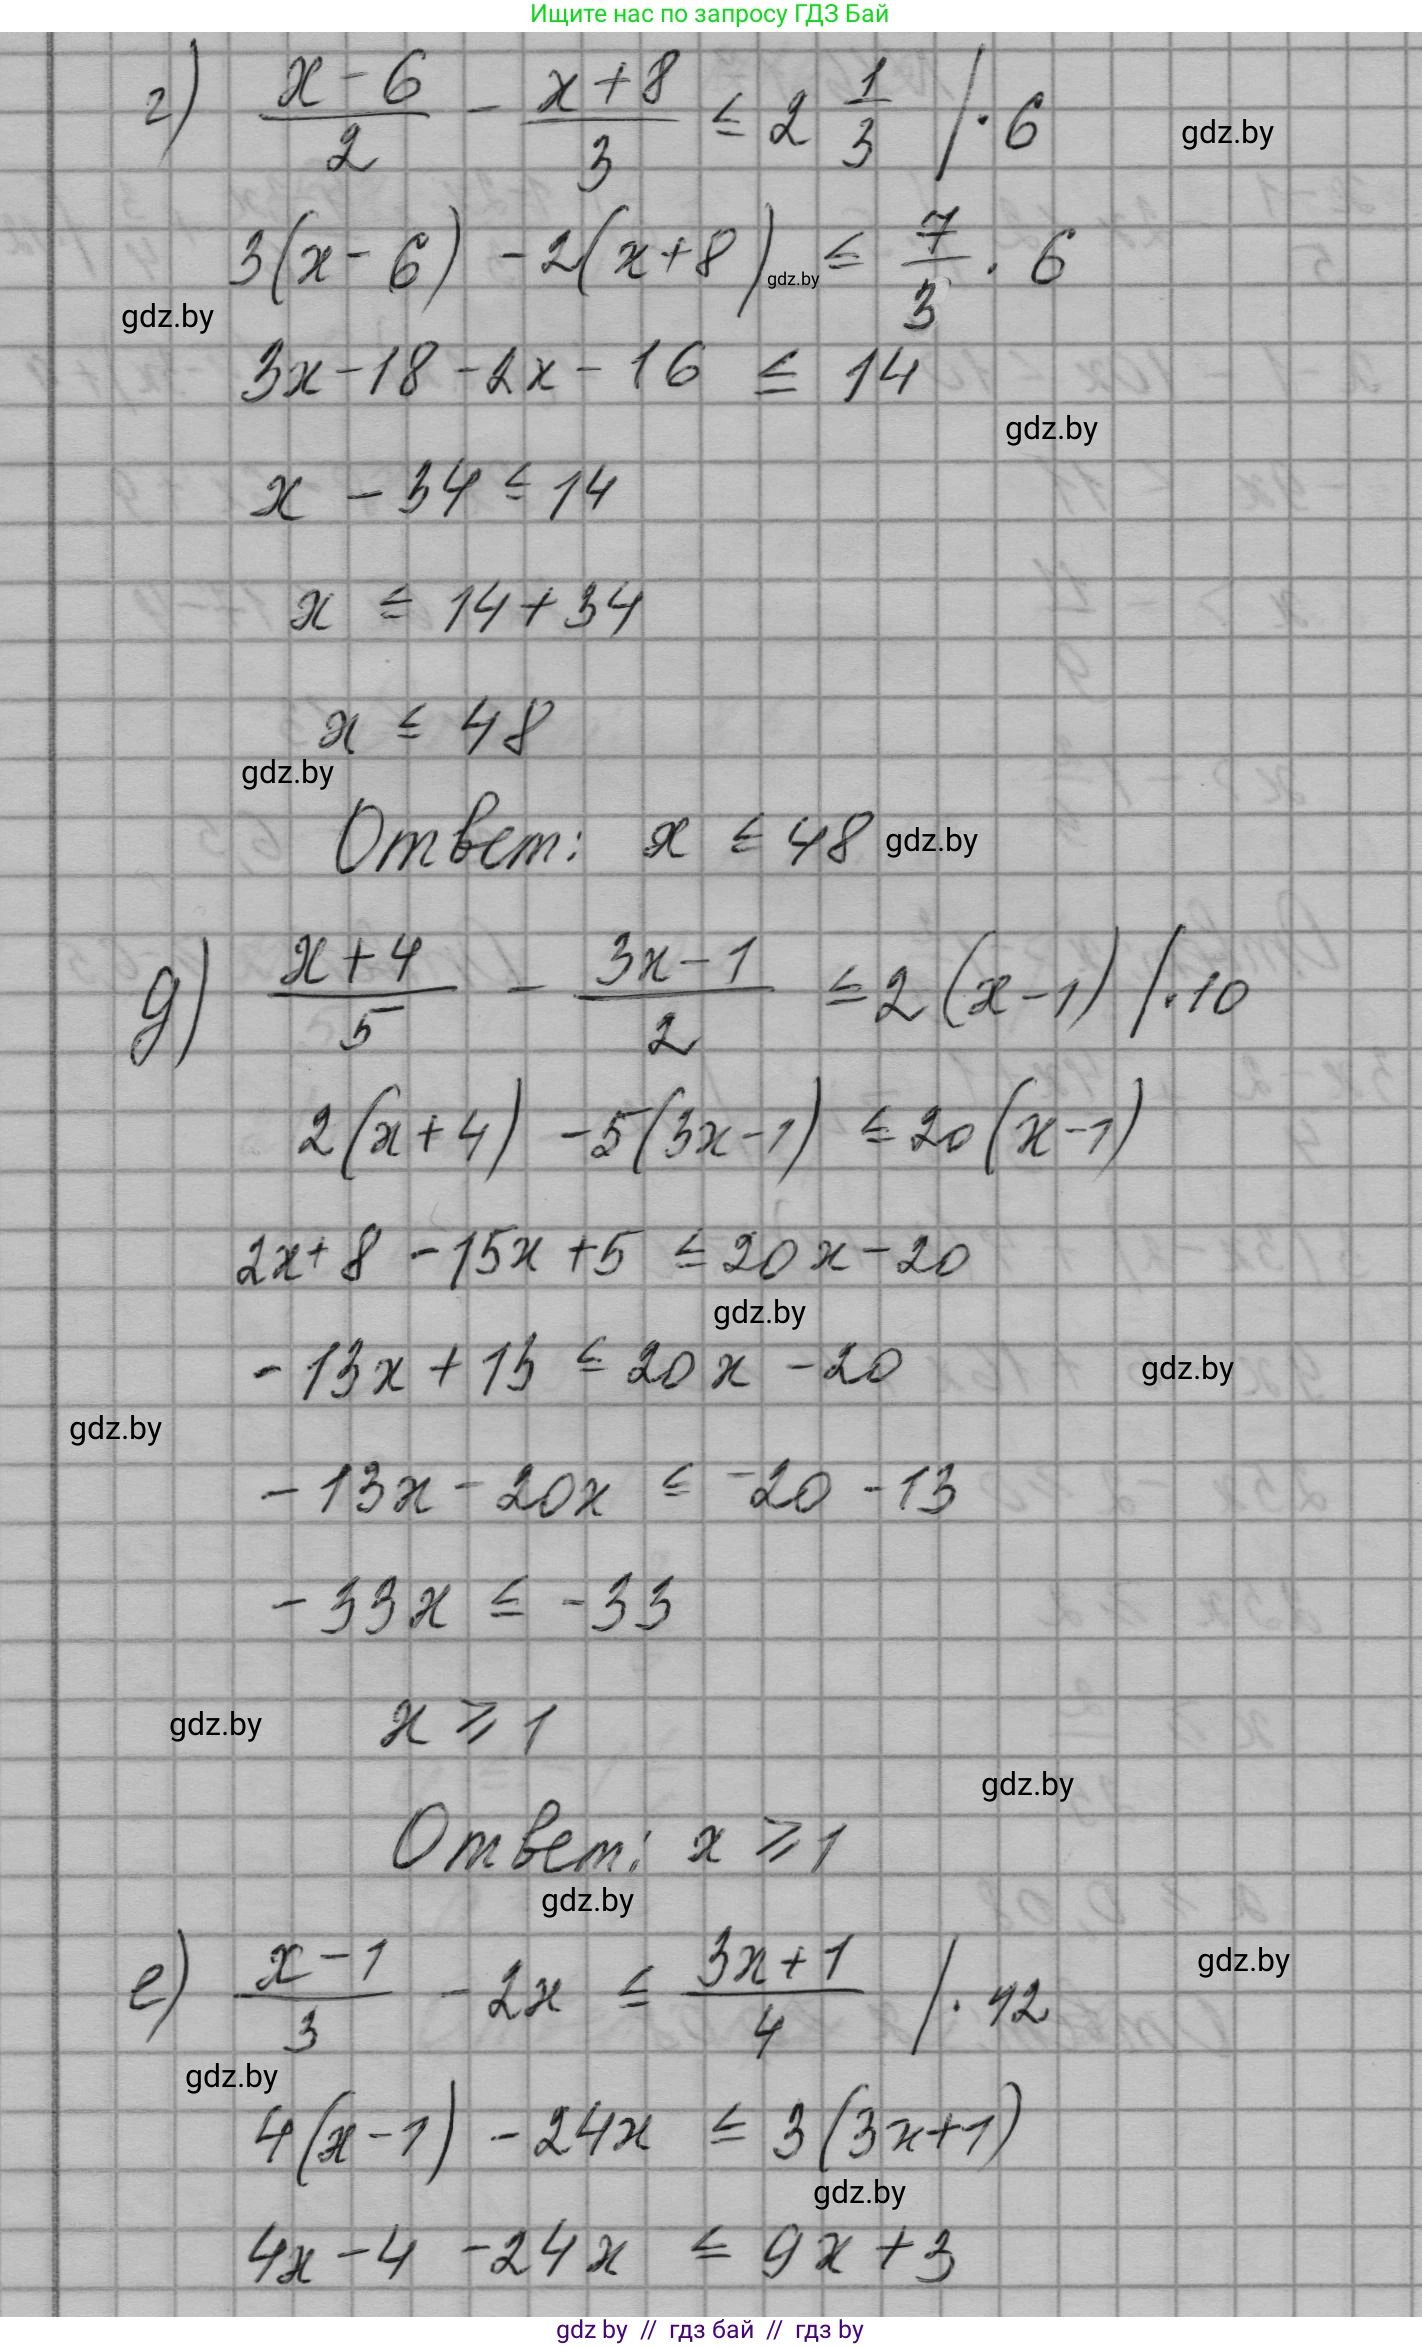 Ищите нас по запросу ГДЗ Бай
г) \frac{x-6}{2} - \frac{x+8}{3} ≤ 2\frac{1}{3} /·6
gdz.by
3(x-6) -2(x+8) ≤ \frac{7}{3} · 6
gdz.by
gdz.by
3x-18-2x-16 ≤ 14
gdz.by
x - 34 ≤ 14
x ≤ 14+34
x ≤ 48
gdz.by
Ответ: x ≤ 48
gdz.by
д) \frac{x+4}{5} - \frac{3x-1}{2} ≤ 2(x-1) /·10
2(x+4) -5(3x-1) ≤ 20(x-1)
2x+8 -15x+5 ≤ 20x-20
gdz.by
-13x+13 ≤ 20x -20
gdz.by
gdz.by
-13x-20x ≤ -20 -13
-33x ≤ -33
gdz.by
x ⩾ 1
gdz.by
Ответ: x ⩾ 1
gdz.by
е) \frac{x-1}{3} - 2x ≤ \frac{3x+1}{4} /·12
gdz.by
gdz.by
4(x-1) -24x ≤ 3(3x+1)
gdz.by
4x-4 -24x ≤ 9x+3
gdz by // гдз бай // гдз by